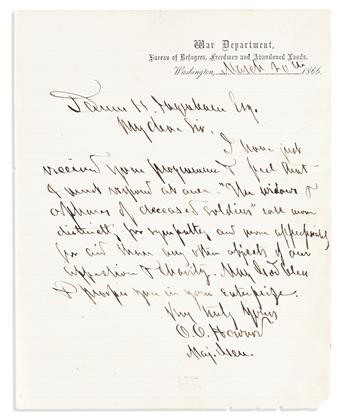 War Department,
Bureau of Refugees, Freedmen and Abandoned Lands.
Washington, March 20th 1866.
H. Esq.
My dear Sir,
I have just
received your programme & feel that
I must respond at once "The widows &
orphans of deceased soldiers" call more
distinctly for sympathy and more affectingly
for aid than any other objects of our
affection & charity. May God bless
& prosper you in your enterprise.
Very truly yours
O.O. Howard
Maj. Gen.